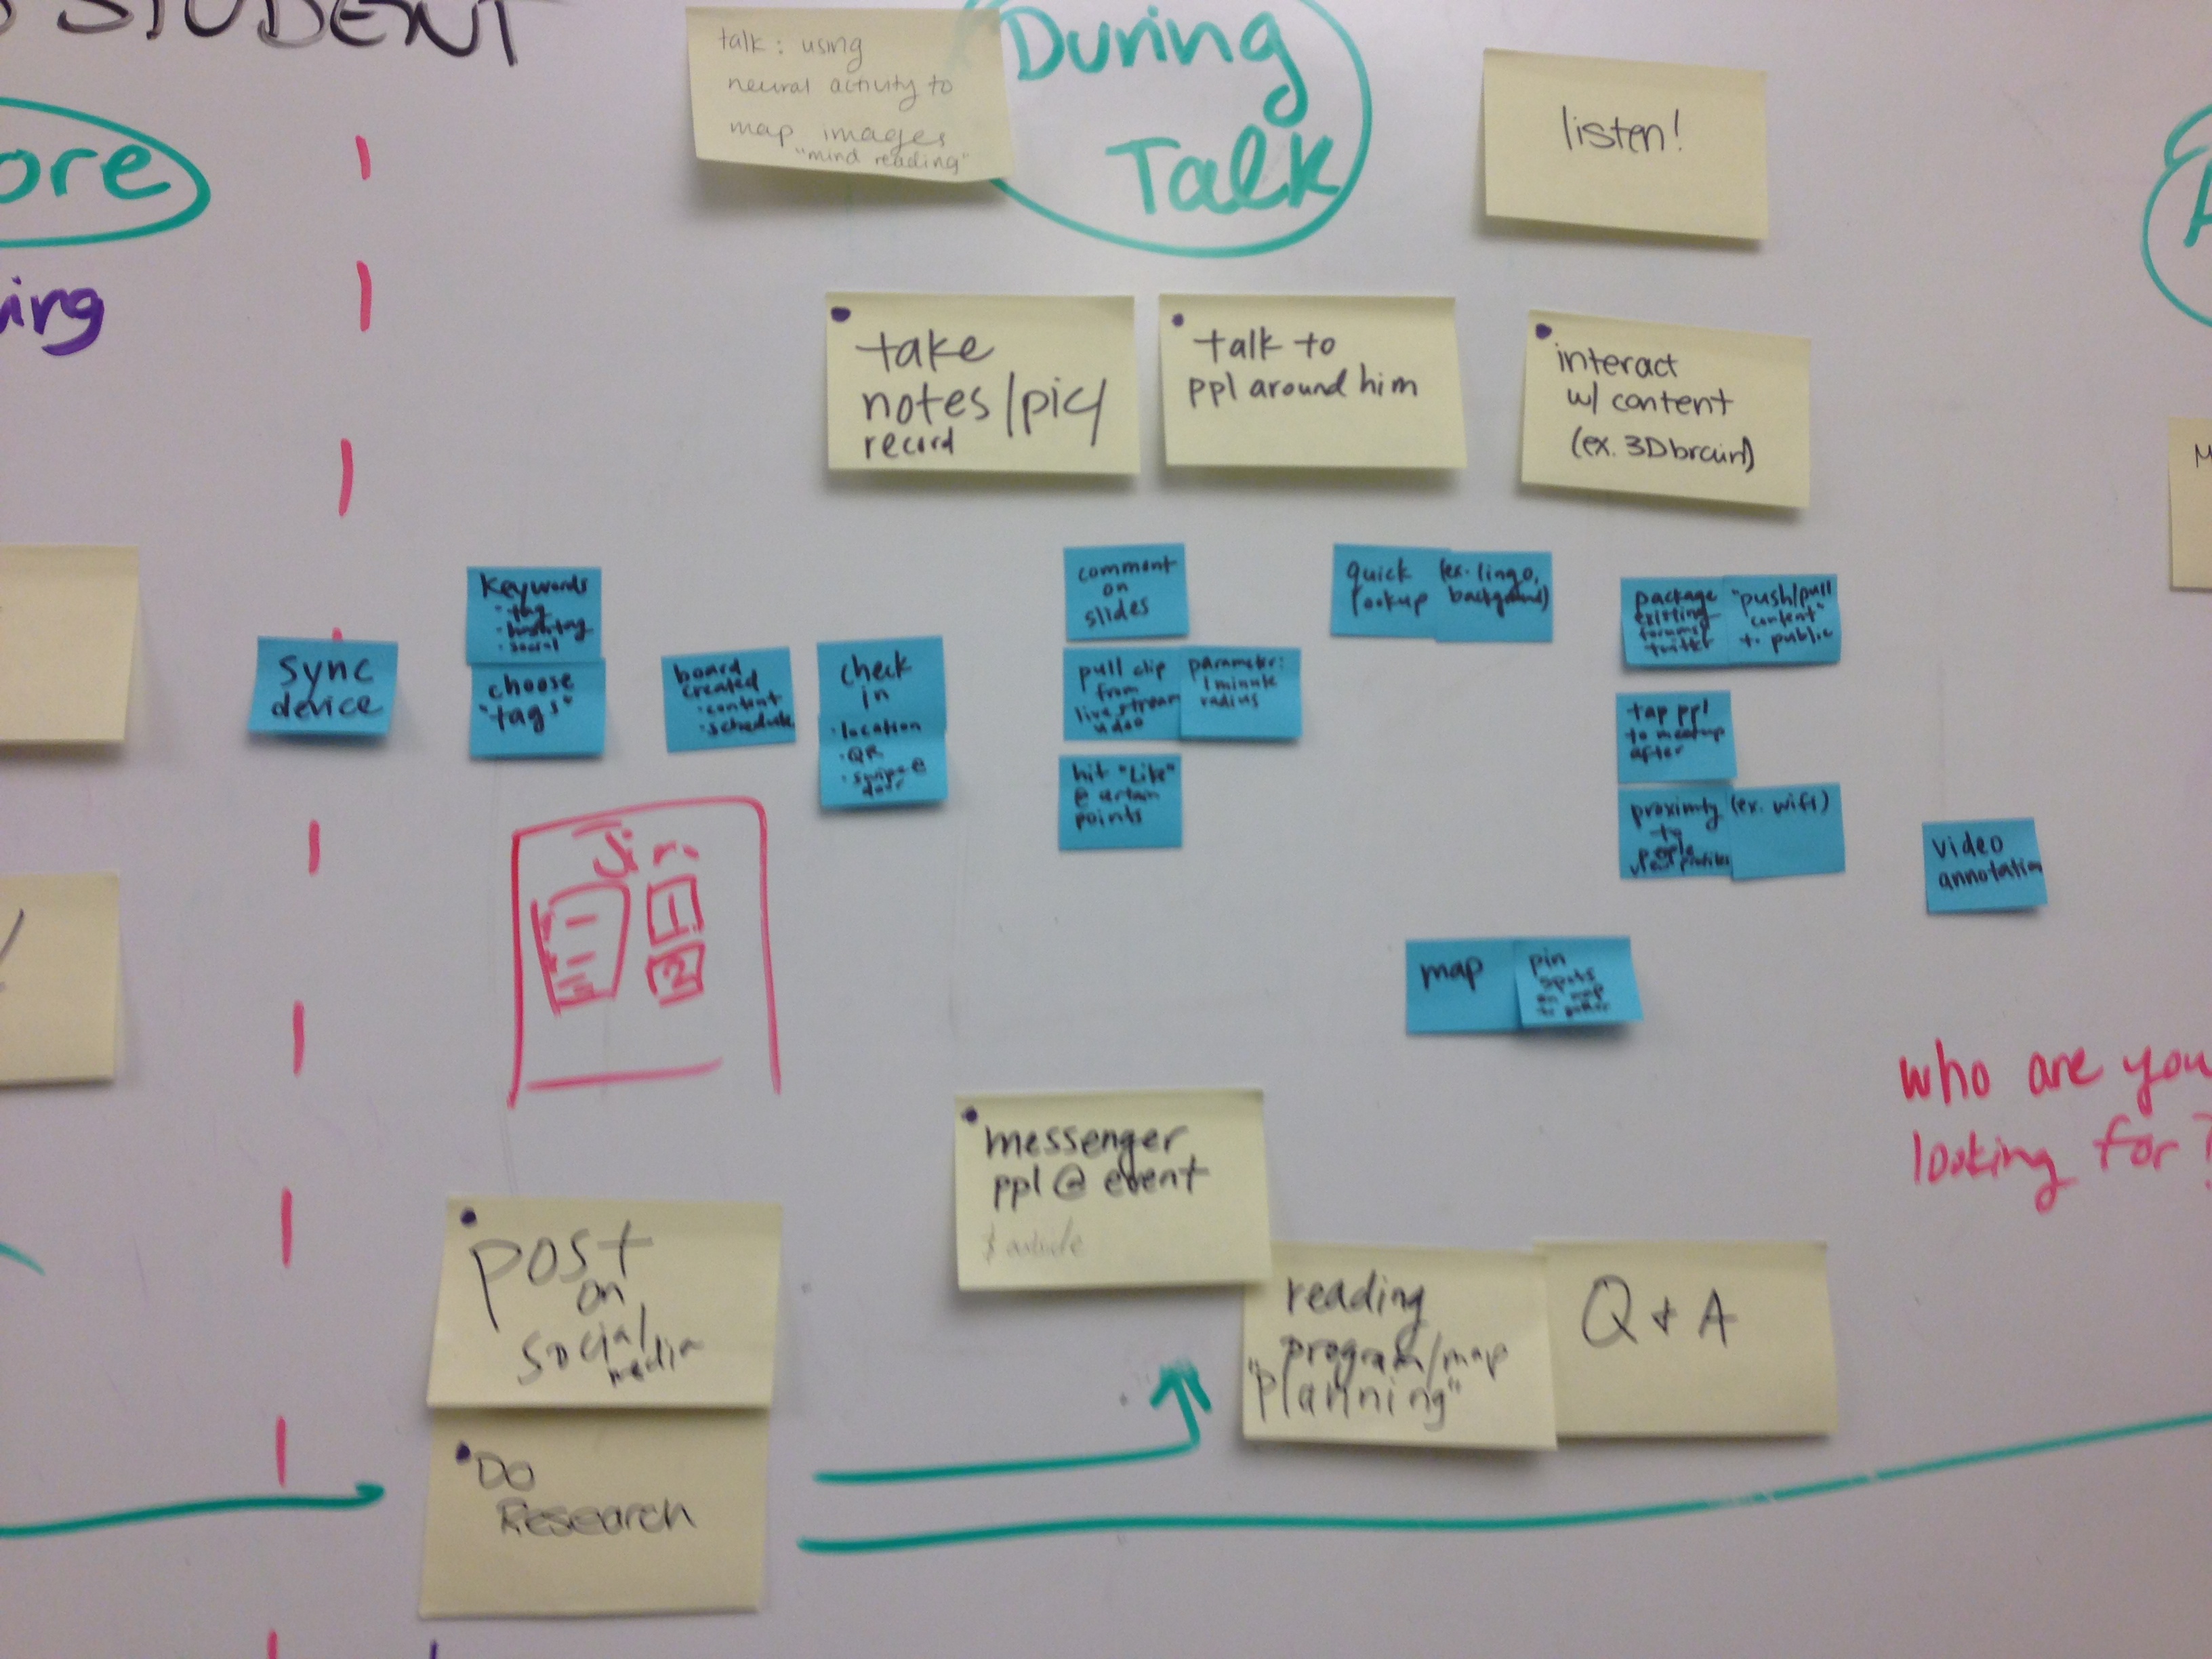 STUDENT
talk: using
neural activity to
map images
"mind reading"
During
Talk
listen!
ore
ing
take
notes/pic/
record
talk to
ppl around him
interact
w/ content
(ex. 3D brain)
sync
device
Keywords
· tag
· hashtag
· social
choose
"tags"
board
created
· content
· schedule
check
in
· location
· QR
· swipe @
door
comment
on
slides
pull clip
from
live stream
video
parameter:
1 minute
radius
hit "Like"
@ certain
points
quick (ex. lingo,
lookup background)
package
existing
forums
twitter
"push/pull
content"
to public
tap ppl
to meetup
after
proximity (ex. wifi)
to
people
profiles
video
annotation
map
pin
spots
on map
to gather
1
2
who are you
looking for?
messenger
ppl @ event
post
on
social
media
Do
Research
reading
program/map
"planning"
Q + A